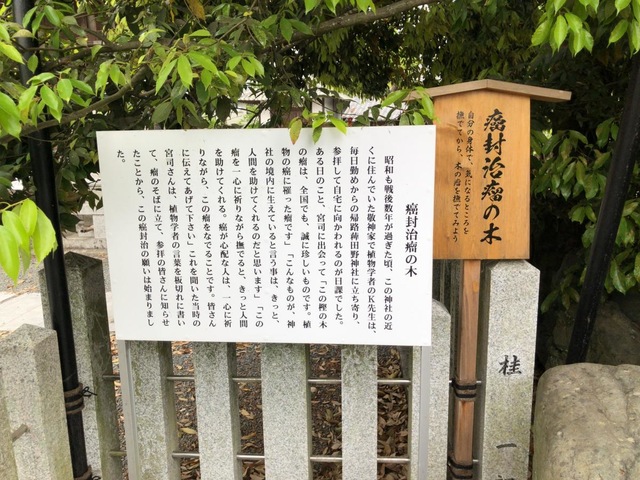 癌封治瘤の木
昭和も戦後数年が過ぎた頃、この神社の近
くに住んでいた敬神家で植物学者のK先生は、
毎日勤めからの帰路薭田野神社に立ち寄り、
参拝して自宅に向かわれるのが日課でした。
ある日のこと、宮司に出会って「この樫の木
の瘤は、全国でも、誠に珍しいものです。植
物の癌に罹った瘤です」「こんなものが、神
社の境内に生えていると言う事は、きっと、
人間を助けてくれるのだと思います」「この
瘤を一心に祈りながら撫でると、きっと人間
を助けてくれる。癌が心配な人は、一心に祈
りながら、この瘤をなでることです。皆さん
に伝えてあげて下さい」これを聞いた当時の
宮司さんは、植物学者の言葉を板切れに書い
て、瘤のそばに立て、参拝の皆さんに知らせ
たことから、この癌封治の願いは始まりまし
た。
癌封治瘤の木
自分の身体で、気になるところを
撫でてから、木の瘤を撫でてみよう
桂 一